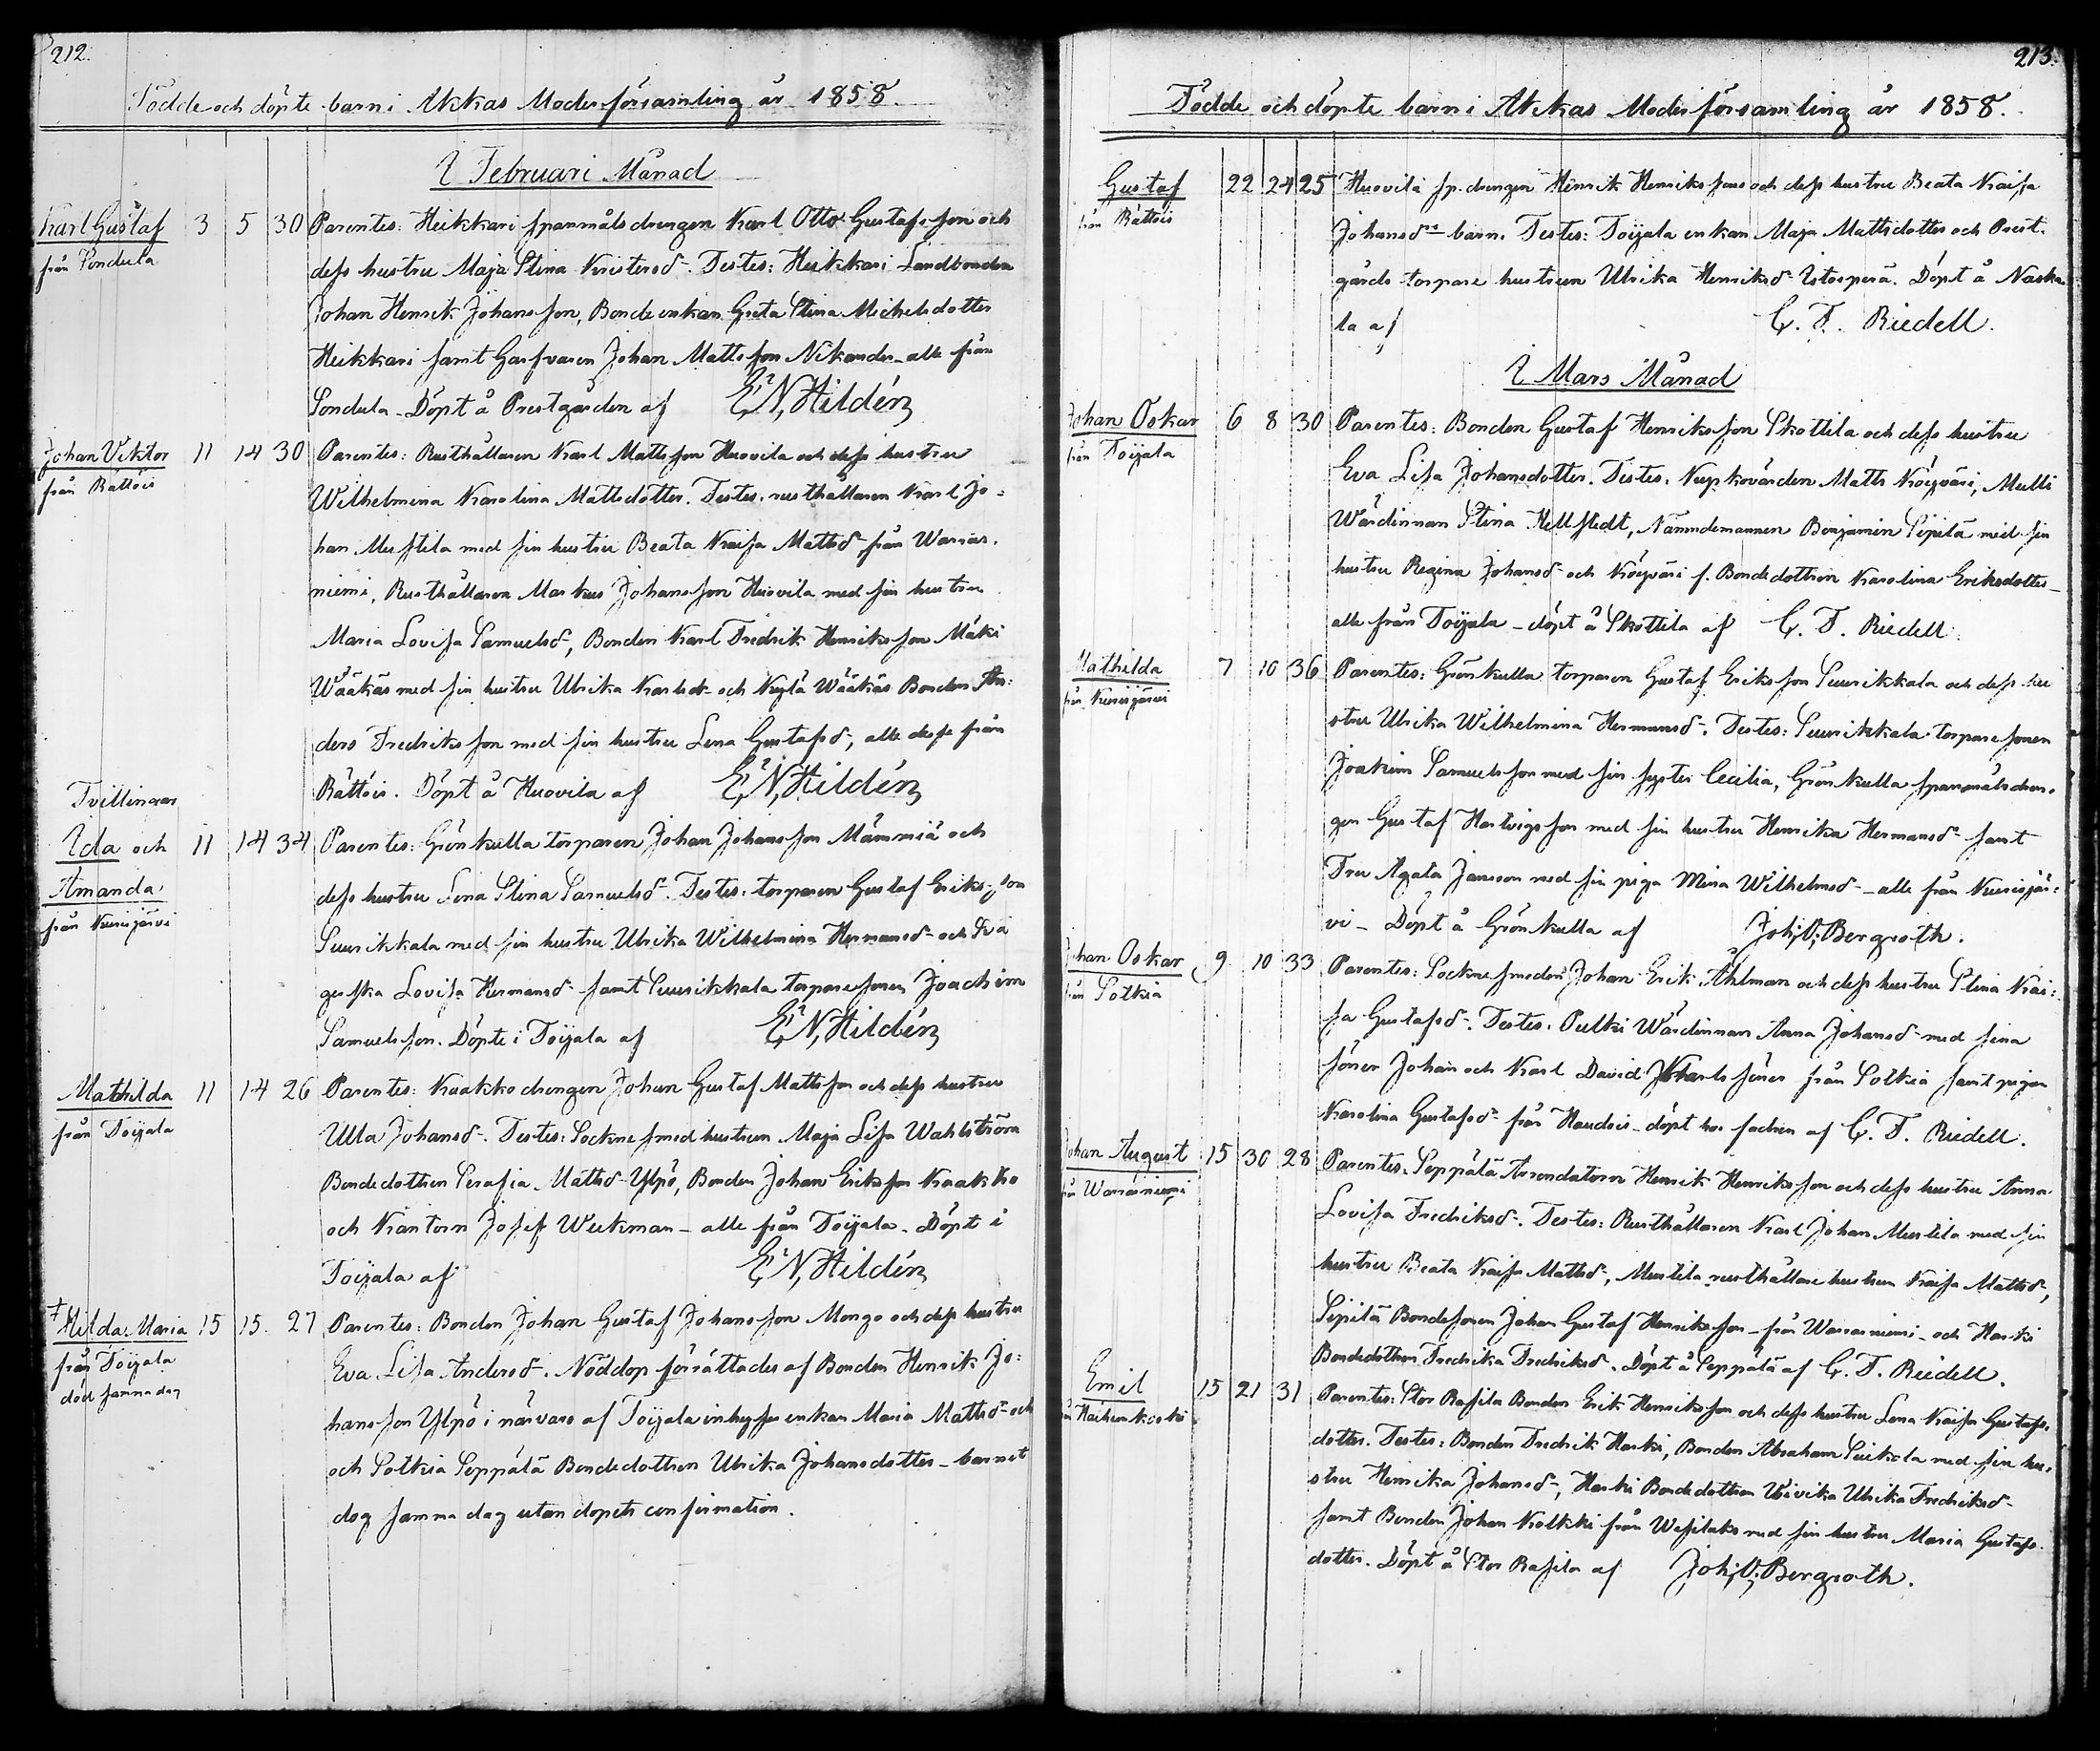 212.
Födde och döpte barn i Akkas Moderförsamling år 1858.
I Februari Månad
Karl Gustaf 3 5 30 Parentes: Heikkari spanmålsdrengen Karl Otto Gustafsson och
från Sondula
dess hustru Maja Stina Kristersd. Testes: Heikkari Landbonden
Johan Henrik Johansson, Bonde enkan Greta Stina Michelsdotter
Heikkari samt Garfvaren Johan Mattsson Nikander - alle från
Sondula - Döpt å Prestgården af E. N. Hildén
Johan Viktor 11 14 30 Parentes: Rusthållaren Karl Mattsson Huovila och dess hustru
från Rättöis
Wilhelmina Karolina Mattsdotter. Testes: rusthållaren Karl Jo=
han Mustila med sin hustru Beata Kaisa Mattsd. från Warras.
niemi, Rusthållaren Markus Johansson Huovila med sin hustru
Maria Lovisa Samuelsd., Bonden Karl Fredrik Henriksson Mäki
Wääkäs med sin hustru Ulrika Karlsd. och Nygtä Wääkäs Bonden An=
ders Fredriksson med sin hustru Lena Gustafsd., alle desse från
Rättöis. Döpt å Huovila af E. N. Hildén
Tvillingar
Ida och 11 14 34 Parentes: Grönkulla torparen Johan Johansson Mämmiä och
Amanda
från Kurisjärvi
dess hustru Lena Stina Samuelsd. Testes: torparen Gustaf Eriksson
Suurikkala med sin hustru Ulrika Wilhelmina Hermansd. och Qvä
gerska Lovisa Hermansd. samt Suurikkala torparesonen Joachim
Samuelsson. Döpte i Toijala af E. N. Hildén
Mathilda 11 14 26 Parentes: Kaakko drengen Johan Gustaf Mattsson och dess hustru
från Toijala
Ulla Johansd. Testes: Sockne smed hustrun Maja Lisa Wahlström
Bondedottren Serafia Mattsd. Ylpö, Bonden Johan Eriksson Kaakko
och Kantorn Josef Weckman - alle från Toijala. Döpt i
Toijala af E. N. Hildén
† Hilda Maria 15 15. 27 Parentes: Bonden Johan Gustaf Johansson Mongo och dess hustru
från Toijala
död samma dag
Eva Lisa Andersd. Nöddop förrättades af Bonden Henrik Jo=
hansson Ylpö i närvaro af Toijala inhyses enkan Maria Mattsd. och
och Sotkia Seppälä Bondedottren Ulrika Johansdotter - barnet
dog samma dag utan dopets confirmation.
213.
Födde och döpte barn i Akkas Moderförsamling år 1858.
Gustaf 22 24 25 Huovila sp. drengen Henrik Henrikssons och dess hustru Beata Kaisa
från Rättöis
Johansd:rs barn. Testes: Toijala enkan Maja Mattsdotter och Prest=
gårds torpare hustrun Ulrika Henriksd. Istorperä. Döpt å Naska
la af C. F. Riedell.
I Mars Månad
Johan Oskar 6 8 30 Parentes: Bonden Gustaf Henriksson Skottila och dess hustru
från Toijala
Eva Lisa Johansdotter. Testes: Nuykovärden Matts Köyväri, Mulli
Wärdinnan Stina Hellstedt, Nämndemannen Benjamin Sipilä med sin
hustru Regina Johansd. och Köyväri f. Bondedottren Karolina Eriksdotter -
alle från Toijala - döpt å Skottila af C. F. Riedell.
Mathilda 7 10 36 Parentes: Grönkulla torparen Gustaf Eriksson Suurikkala och dess hu
från Kurisjärvi
stru Ulrika Wilhelmina Hermansd. Testes: Suurikkala torparesonen
Joakim Samuelsson med sin syster Cecilia, Grönkulla spanmålsdren=
gen Gustaf Hartvigsson med sin hustru Henrika Hermansd. samt
Fru Agata Jansson med sin piga Mina Wilhelmsd. - alle från Kurisjär=
vi - Döpt å Grönkulla af Joh. O. Bergroth.
Johan Oskar 9 10 33 Parentes: Sockne smeden Johan Erik Ahlman och dess hustru Stina Kai=
från Sotkia
sa Gustafsd. Testes: Pulki Wärdinnan Anna Johansd. med sina
söner Johan och Karl David Karls söner från Sotkia samt pigan
Karolina Gustafsd. från Haudois - döpt hos fadren af C. F. Riedell.
Johan August 15 30 28 Parentes: Seppälä Arrendatorn Henrik Henriksson och dess hustru Anna
från Warrasniemi
Lovisa Fredriksd. Testes: Rusthållaren Karl Johan Mustila med sin
hustru Beata Kaisa Mattsd., Mustila rusthållare hustrun Kaisa Mattsd.,
Sipilä Bondesonen Johan Gustaf Henriksson - från Warrasniemi - och Harki
Bondedottren Fredrika Fredriksd. Döpt å Seppälä af C. F. Riedell.
Emil 15 21 31 Parentes: Stor Rasila Bonden Erik Henriksson och dess hustru Lena Kaisa Gustafs=
från Haihunkoski
dotter. Testes: Bonden Fredrik Harki, Bonden Abraham Suikola med sin hu=
stru Henrika Johansd., Harki Bondedottren Wivika Ulrika Fredriksd.
samt Bonden Johan Kolkki från Wesilaks med sin hustru Maria Gustafs
dotter. Döpt å Stor Rasila af Joh. O. Bergroth.